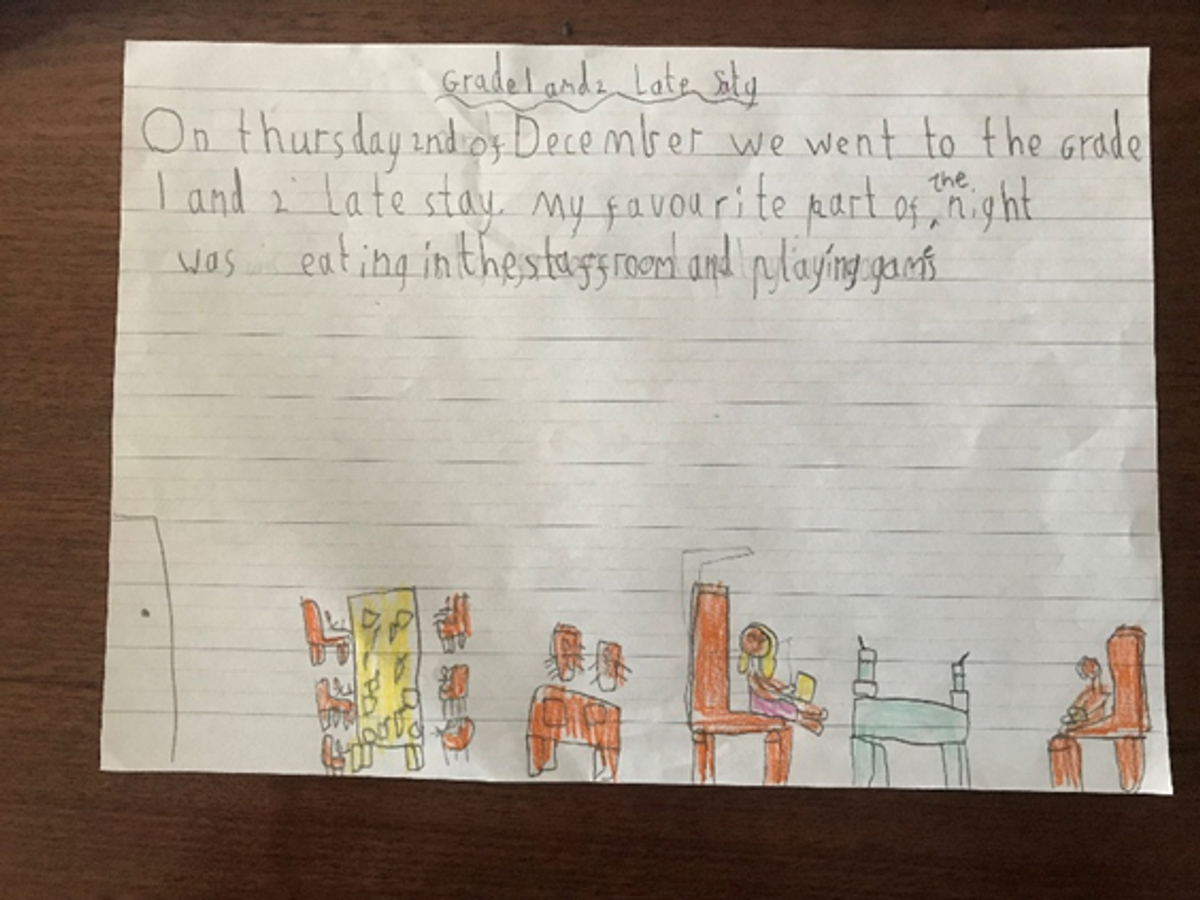 Grade 1 and 2 Late Saty
On thursday 2nd of December we went to the Grade
1 and 2 late stay. My favourite part of the night
was eating in the staffroom and playing games